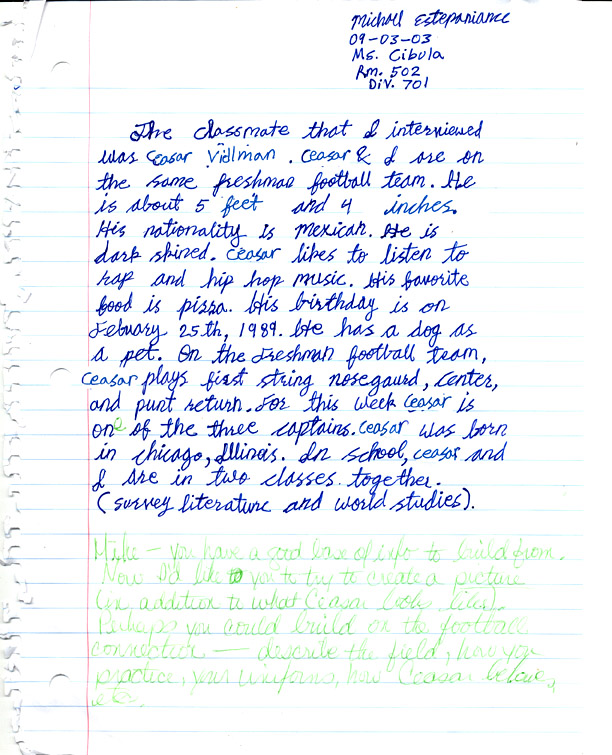 Michael Estepaniance
09-03-03
Ms. Cibula
Rm. 502
Div. 701
The classmate that I interviewed
was Ceasar Vidlman. Ceasar & I are on
the same freshman football team. He
is about 5 feet and 4 inches.
His nationality is Mexican. He is
dark skined. Ceasar likes to listen to
rap and hip hop music. His favorite
food is pizza. His birthday is on
Febuary 25th, 1989. He has a dog as
a pet. On the Freshman football team,
Ceasar plays first string nosegaurd, center,
and punt return. For this week Ceasar is
one of the three captains. Ceasar was born
in Chicago, Illinois. In school, Ceasar and
I are in two classes together.
(survey literature and world studies).
Mike — you have a good base of info to build from.
Now I'd like to you to try to create a picture
(in addition to what Ceasar looks like).
Perhaps you could build on the football
connection — describe the field, how you
practice, your uniforms, how Ceasar behaves,
etc.